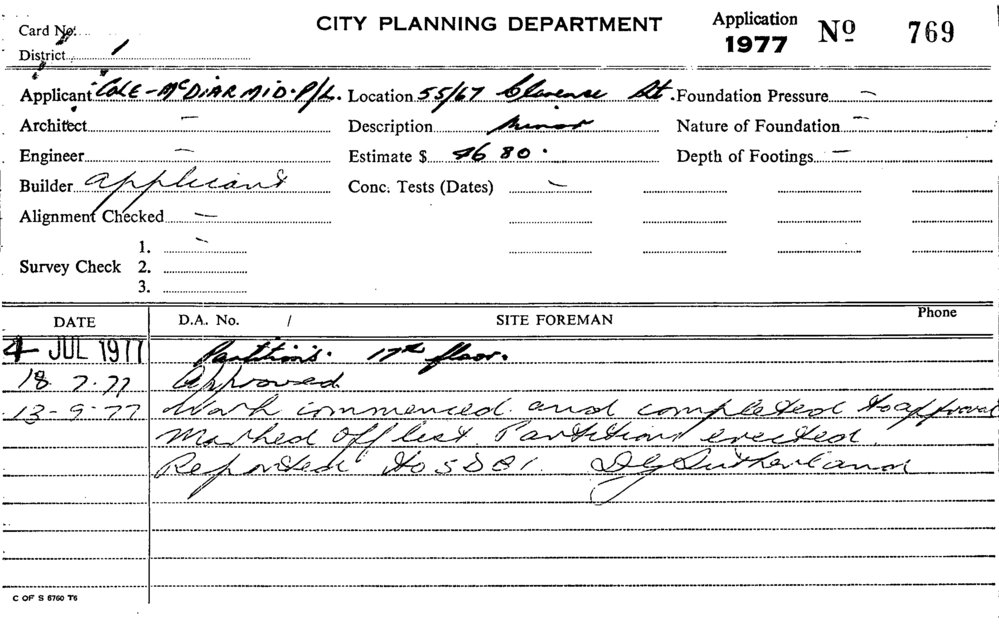 CITY PLANNING DEPARTMENT
Application
1977 Nº 769
Card No.
District 1
Applicant COLE-McDIARMID. P/L. Location 55/67 Clarence St. Foundation Pressure —
Architect — Description Minor Nature of Foundation —
Engineer — Estimate $ 4680. Depth of Footings —
Builder applicant Conc. Tests (Dates) —
Alignment Checked —
Survey Check 1. —
2.
3.
DATE D.A. No. / SITE FOREMAN Phone
4 JUL 1977 Partitions. 17th floor.
18. 7. 77 Approved
13-9-77 Work commenced and completed to approval
Marked off list. Partitions erected.
Reported to SDBI. DG Sutherland
C OF S 6760 T6